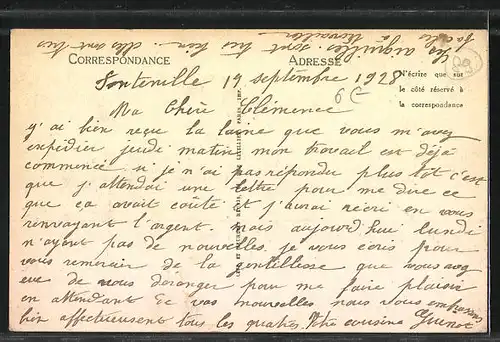 les aiguilles sont très bien. elles ont très
faciles à travailler
CORRESPONDANCE
ADRESSE
N'écrire que sur
le côté réservé à
la correspondance
Fonteville 19 septembre 1928
6 €
Ma Chère Clémence
y'ai bien reçue la laine que vous m'avez
expédier jeudi matin mon travail est déjà
commencé si je n'ai pas répondu plus tôt c'est
que j'attendai une lettre pour me dire ce
que ça avait coûté et j'aurai récri en vous
renvoyant l'argent. mais aujourd'hui lundi
n'ayent pas de nouvelles, je vous écris pour
vous remercier de la gentillesse que vous avez
eue de vous déranger pour me faire plaisir
en attendant de vos nouvelles nous vous embrassons
bien affectueusement tous les quatres. Votre cousine Guenot